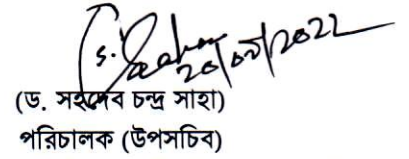 S. Saha
20/09/2022
(ড. সহদেব চন্দ্র সাহা)
পরিচালক (উপসচিব)